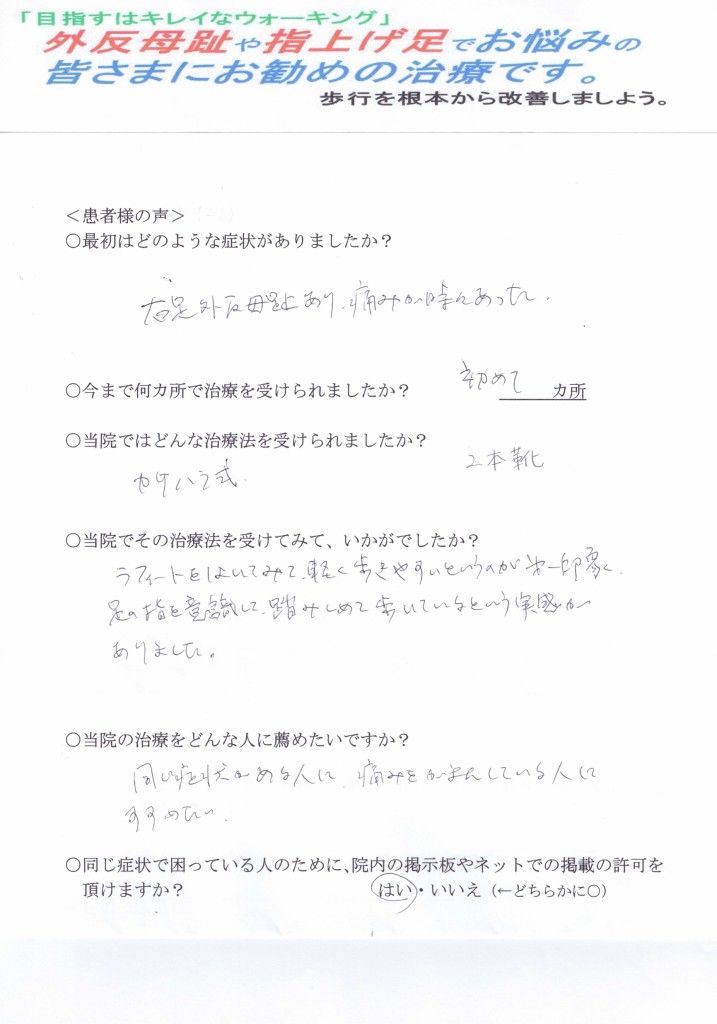 「目指すはキレイなウォーキング」
外反母趾や指上げ足でお悩みの
皆さまにお勧めの治療です。
歩行を根本から改善しましょう。
＜患者様の声＞
○最初はどのような症状がありましたか？
右足外反母趾あり、痛みが時々あった。
○今まで何カ所で治療を受けられましたか？ 初めて カ所
○当院ではどんな治療法を受けられましたか？
カサハラ式 2本靴
○当院でその治療法を受けてみて、いかがでしたか？
ラフィートをはいてみて、軽く歩きやすいというのが第一印象で、
足の指を意識して、踏みしめて歩いているという実感が
ありました。
○当院の治療をどんな人に薦めたいですか？
同じ症状がある人に、痛みをがまんしている人に
すすめたい。
○同じ症状で困っている人のために、院内の掲示板やネットでの掲載の許可を
頂けますか？ はい・いいえ（←どちらかに○）